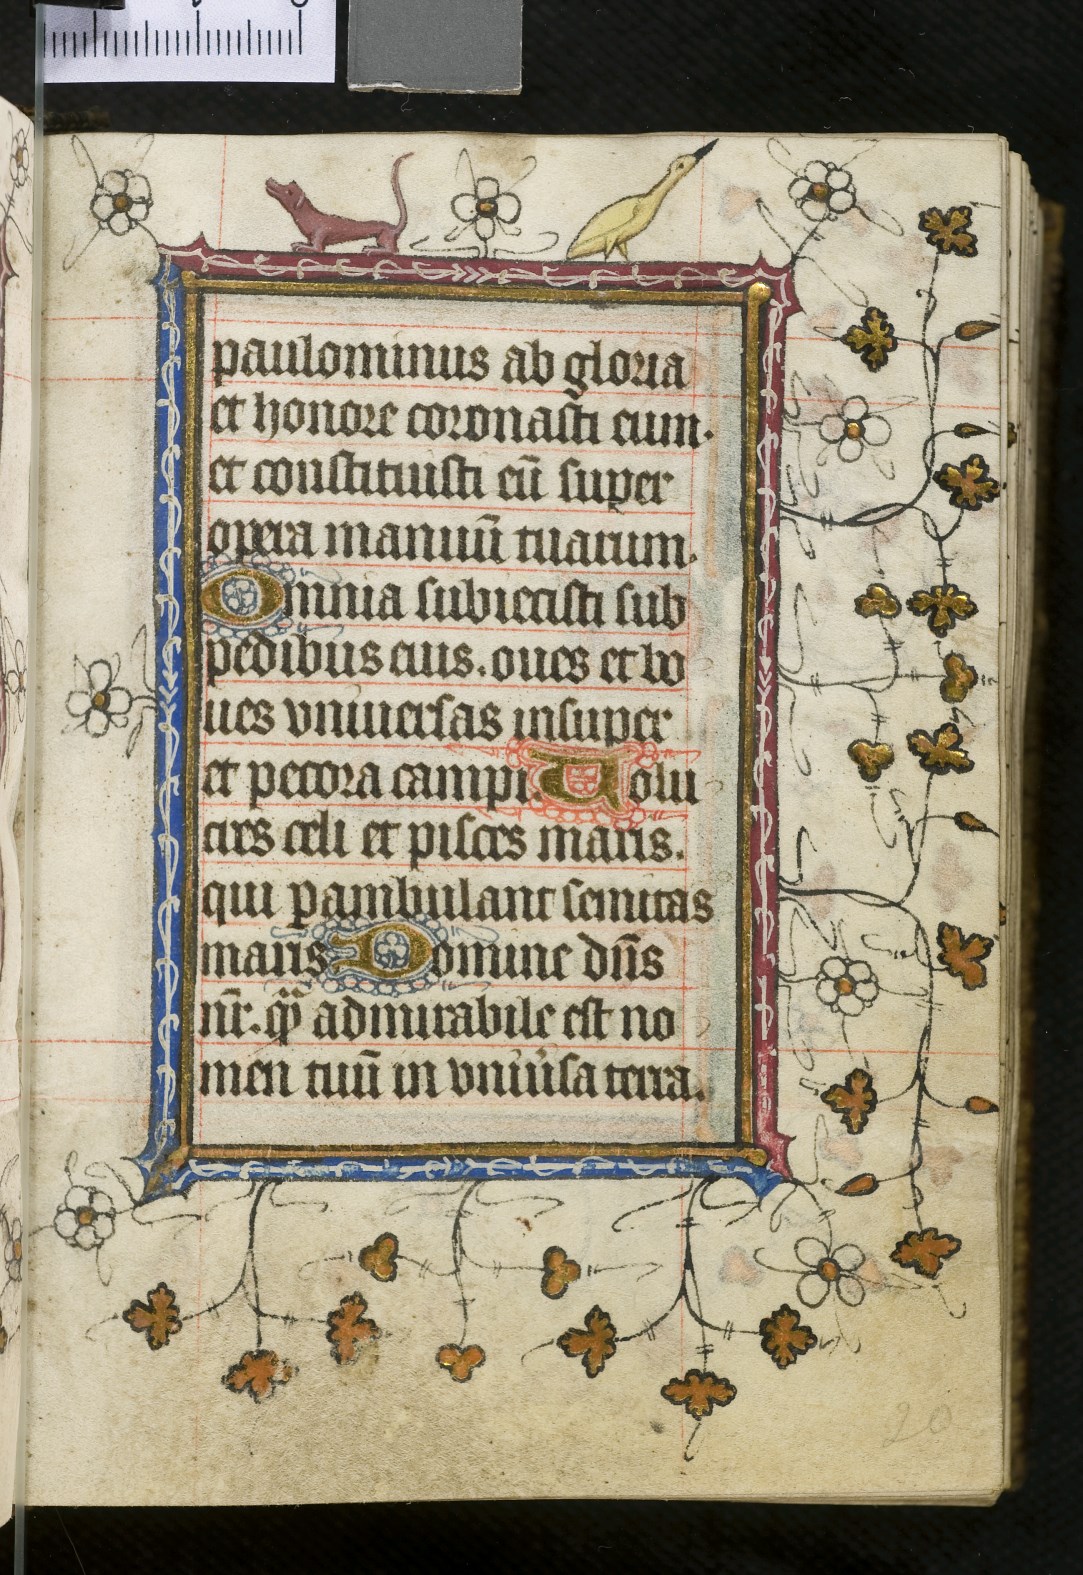 paulominus ab gloria
et honore coronasti eum.
et constituisti eū super
opera manuū tuarum.
Omnia subiecisti sub
pedibus eius. oues et bo
ues vniuersas insuper
et pecora campi. Uolu
cres celi et pisces maris.
qui pambulant semitas
maris Domine dn̄s
nr̄. qͫ admirabile est no
men tuū in vniūsa terra.
20